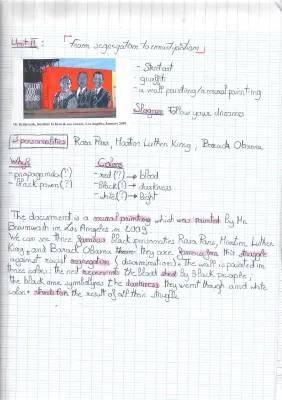 Unit II : "From segregation to emancipation"
FOLLOW YOUR DREAMS
- Street art
- graffiti
- a wall painting/a mural painting
Slogan: Follow your dreams
3 personalities Rosa Pars, Martin Luther King, Barack Obama
Why? Colors
- propaganda (?) - red (?) → blood
- black power (?) - black (?) → darkness
- white (?) → light
The document is a mural painting which was painted by Mr
Brainwash in Los Angeles in 2009.
We can see three famous black personnates Rosa Pars, Martin Luther
King, and Barack Obama they are famous for this struggle
against racial segregation (discriminations). The wall is painted in
three colors: the red represents the blood shed by Black people,
the black one symbolizes the darkness they went though and white
color stands for the result of all their struggle